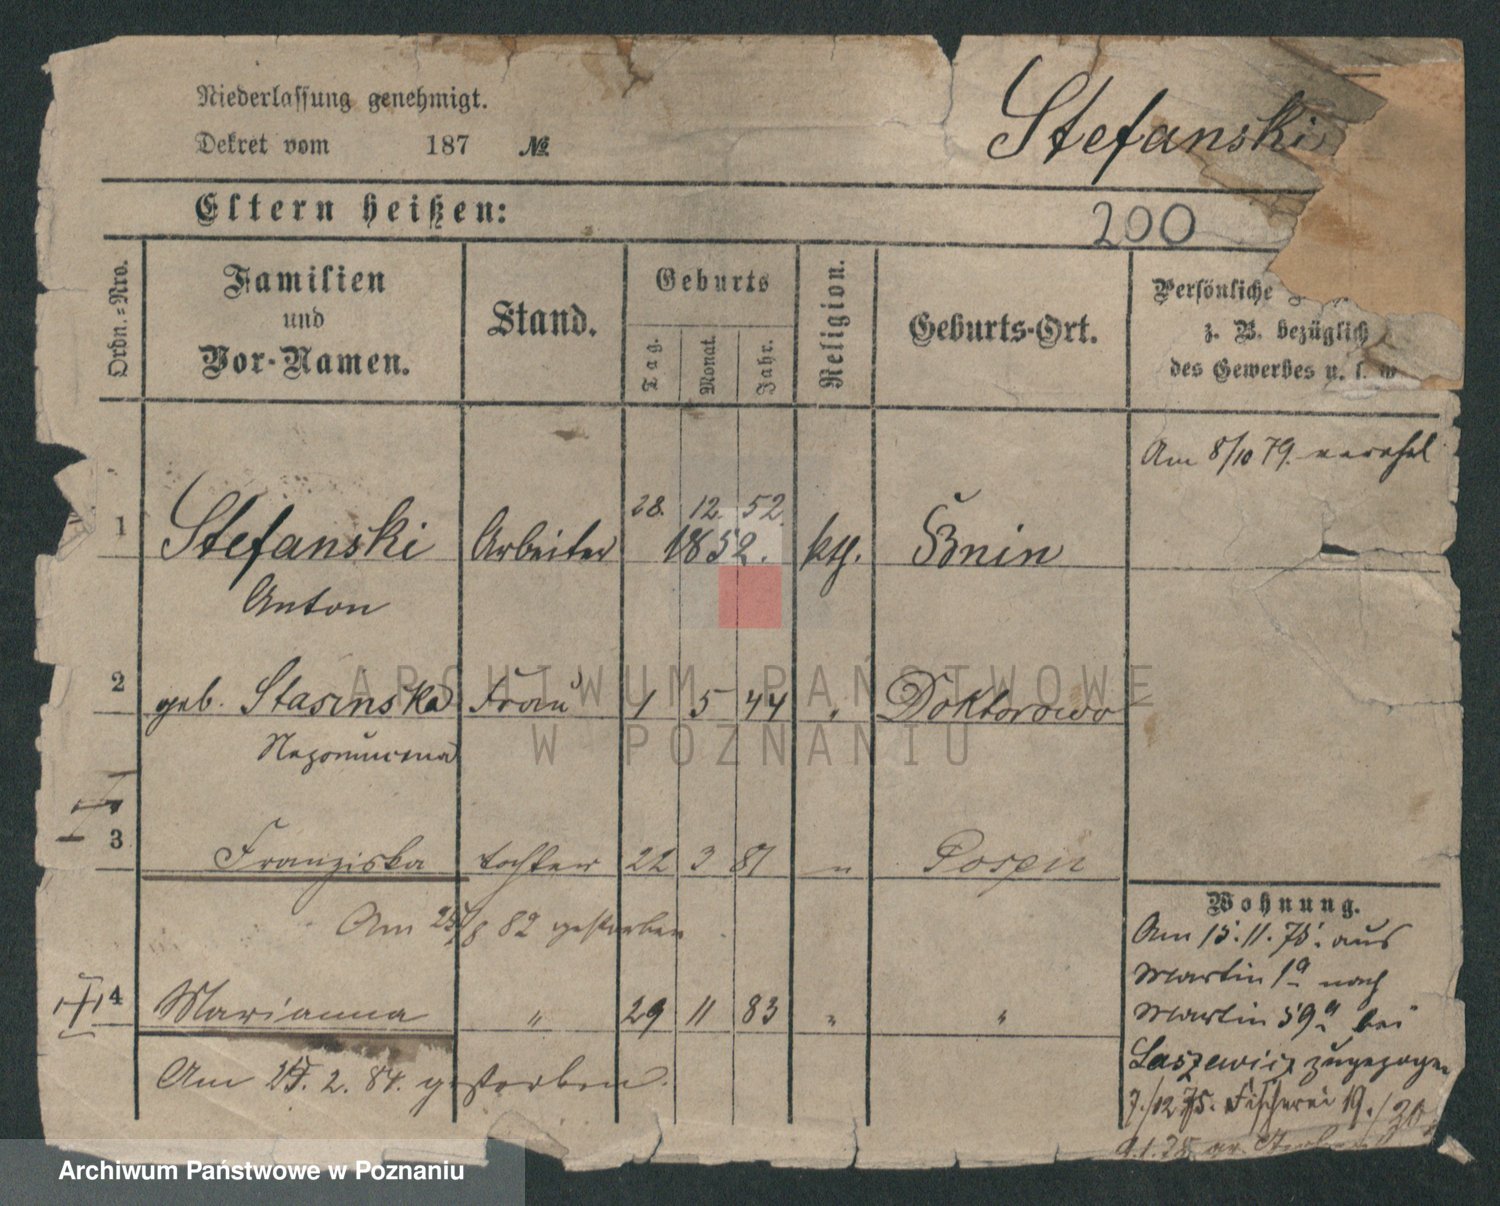 Niederlassung genehmigt.
Stefanski
Dekret vom 187 №
Eltern heißen:
200
Ordn.-Nro.
Familien
und
Vor-Namen.
Stand.
Geburts
Tag.
Monat.
Jahr.
Religion.
Geburts-Ort.
Persönliche
z. B. bezüglich
des Gewerbes u. s. w
Am 8/10 79. verehel
28. 12. 52.
1 Stefanski Arbeiter 1852. kth. Bnin
Anton
2 geb. Stasinska Frau 1 5 44 " Doktorowo
Nepomucena
3 Franziska tochter 22 3 81 " Posen
Am 25/8 82 gestorben
4 Marianna " 29 11 83 " "
Am 25. 2. 84. gestorben.
Wohnung.
Am 15.11.75. aus
Martin 1a nach
Martin 59a bei
Laszewicz zugezogen
7./12 75. Fischerei 19./20
ARCHIWUM PAŃSTWOWE
W POZNANIU
Archiwum Państwowe w Poznaniu